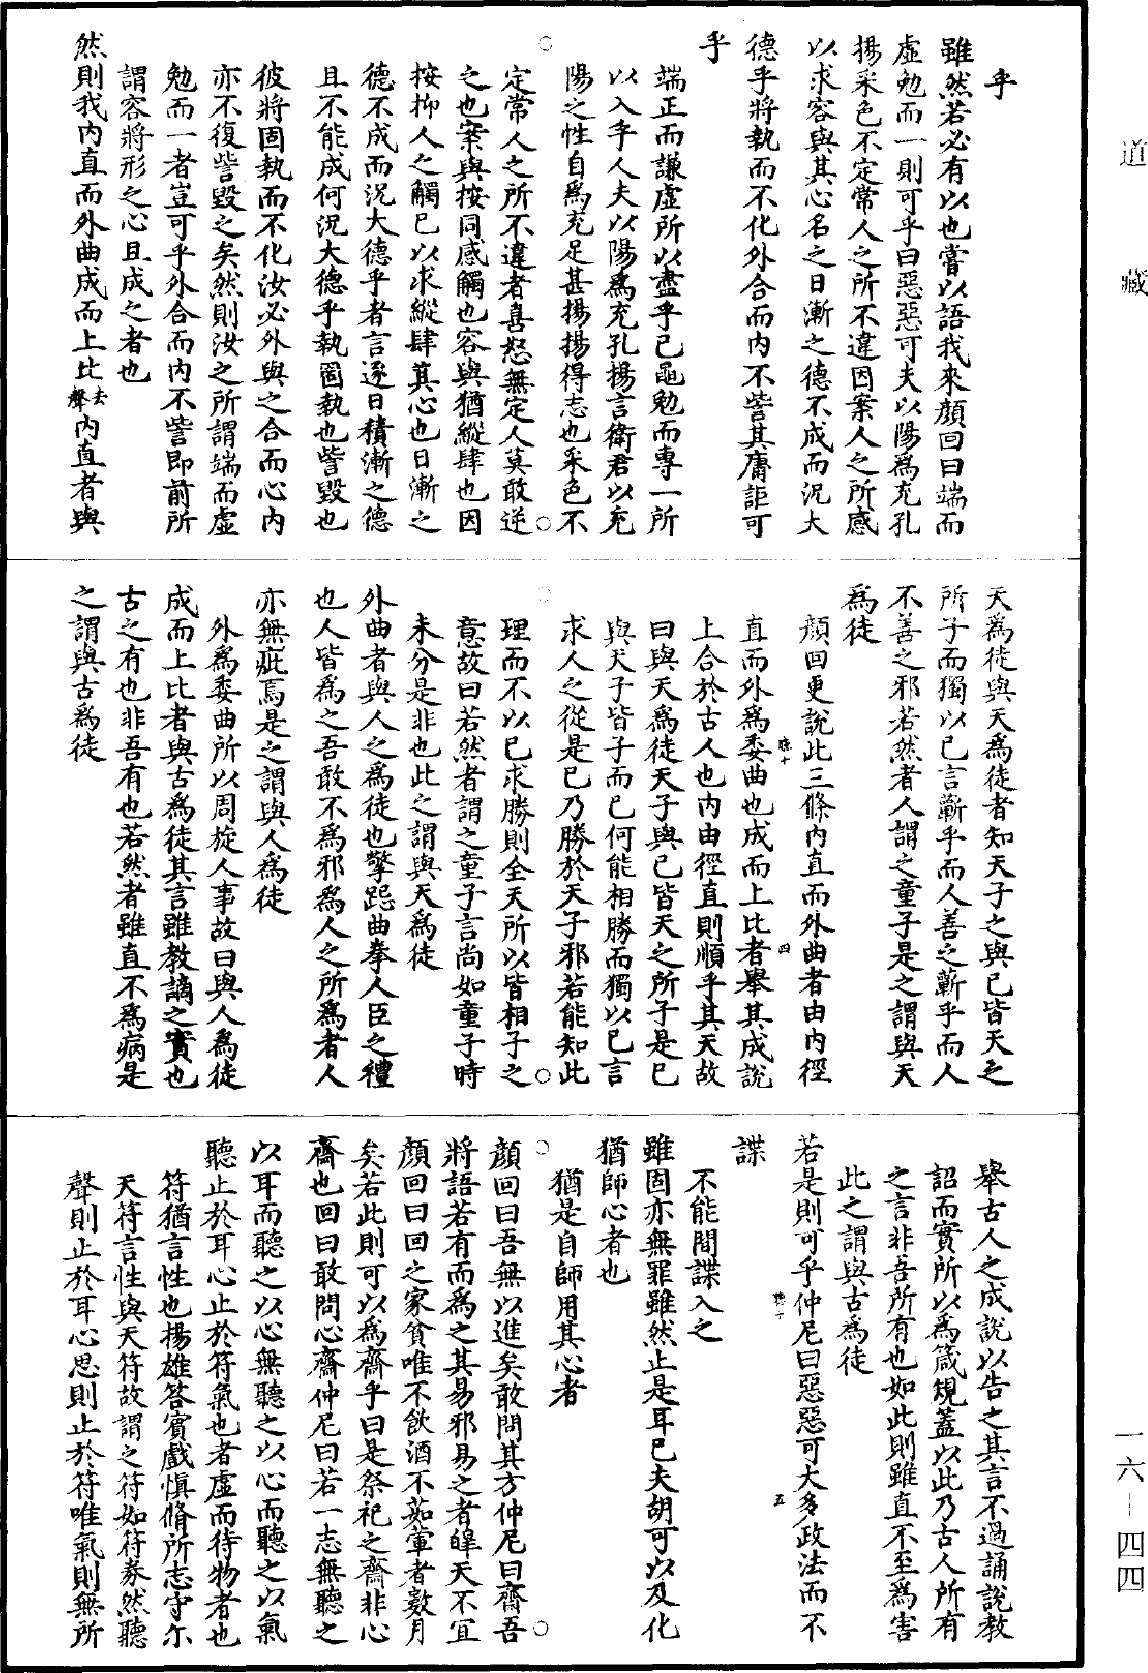 道藏
乎
雖然若必有以也嘗以語我來顏回曰端而
虛勉而一則可乎曰惡惡可夫以陽為充孔
揚采色不定常人之所不違因案人之所感
以求容與其心名之日漸之德不成而況大
德乎將執而不化外合而內不訾其庸詎可
乎
端正而謙虛所以盡乎己黽勉而專一所
以入乎人夫以陽為充孔揚言衛君以充
陽之性自為充足甚揚揚得志也采色不
定常人之所不違者喜怒無定人莫敢逆
之也案與按同感觸也容與猶縱肆也因
按抑人之觸己以求縱肆其心也日漸之
德不成而況大德乎者言逐日積漸之德
且不能成何況大德乎執固執也訾毀也
彼將固執而不化汝必外與之合而心內
亦不復訾毀之矣然則汝之所謂端而虛
勉而一者豈可乎外合而內不訾即前所
謂容將形之心且成之者也
然則我內直而外曲成而上比去聲內直者與
天為徒與天為徒者知天子之與己皆天之
所子而獨以己言蘄乎而人善之蘄乎而人
不善之邪若然者人謂之童子是之謂與天
為徒
顏回更說此三條內直而外曲者由內徑
直而外為委曲也成而上比者舉其成說
上合於古人也內由徑直則順乎其天故
曰與天為徒天子與己皆天之所子是己
與天子皆子而已何能相勝而獨以己言
求人之從是己乃勝於天子邪若能知此
理而不以己求勝則全天所以皆相子之
意故曰若然者謂之童子言尚如童子時
未分是非也此之謂與天為徒
外曲者與人之為徒也擎跽曲拳人臣之禮
也人皆為之吾敢不為邪為人之所為者人
亦無疵焉是之謂與人為徒
外為委曲所以周旋人事故曰與人為徒
成而上比者與古為徒其言雖教讁之實也
古之有也非吾有也若然者雖直不為病是
之謂與古為徒
舉古人之成說以告之其言不過誦說教
詔而實所以為箴規蓋以此乃古人所有
之言非吾所有也如此則雖直不至為害
此之謂與古為徒
若是則可乎仲尼曰惡惡可大多政法而不
諜
不能間諜入之
雖固亦無罪雖然止是耳已夫胡可以及化
猶師心者也
猶是自師用其心者
顏回曰吾無以進矣敢問其方仲尼曰齋吾
將語若有而為之其易邪易之者皞天不宜
顏回曰回之家貧唯不飲酒不茹葷者數月
矣若此則可以為齋乎曰是祭祀之齋非心
齋也回曰敢問心齋仲尼曰若一志無聽之
以耳而聽之以心無聽之以心而聽之以氣
聽止於耳心止於符氣也者虛而待物者也
符猶言性也揚雄答賓戲慎脩所志守尒
天符言性與天符故謂之符如符券然聽
聲則止於耳心思則止於符唯氣則無所
一六—四四